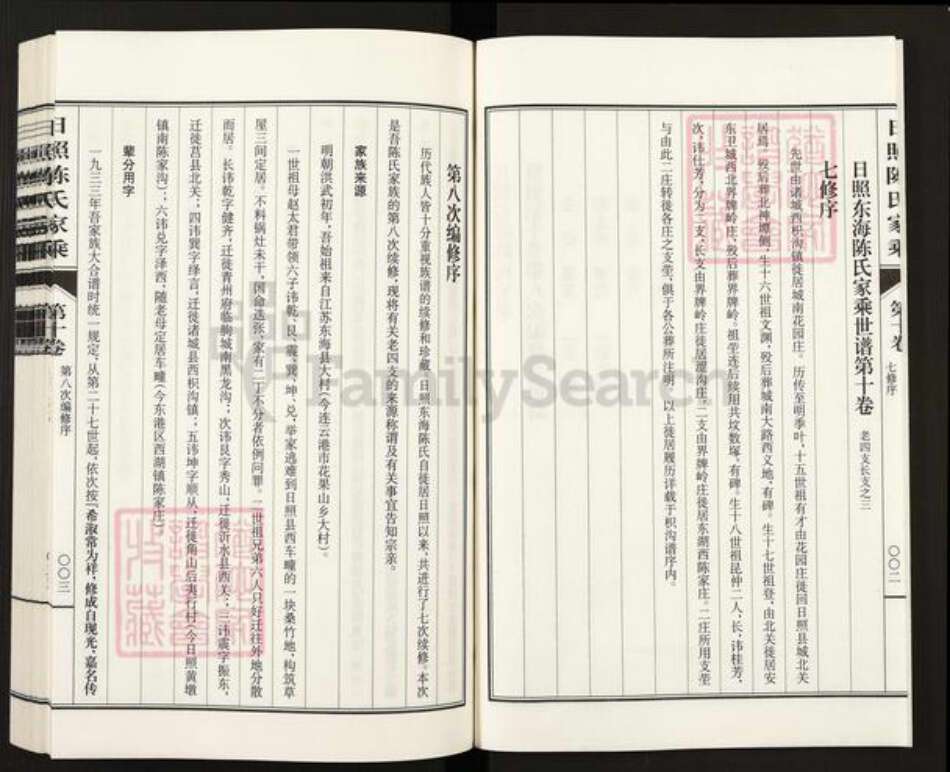 日照陈氏家乘
第十卷
七修序
〇〇二
日照东海陈氏家乘世谱第十卷
老四支长支之三
七修序
先世由诸城西枳沟镇徙居城南花园庄。历传至明季叶，十五世祖有才由花园庄徙回日照县城北关
居焉，殁后葬北神坛侧。生十六世祖文渊，殁后葬城南大路西义地，有碑。生十七世祖登，由北关徙居安
东卫城西北界牌岭庄，殁后葬界牌岭。祖茔连后续用共坟数塚，有碑。生十八世祖昆仲二人，长，讳桂芳，
次，讳仕芳，分为二支，长支由界牌岭庄徙居涩沟庄。二支由界牌岭庄徙居东湖西陈家庄。二庄所用支茔
与由此二庄转徙各庄之支茔，俱于各公葬所注明。以上徙居履历详载于枳沟谱序内。
第八次编修序
历代族人皆十分重视族谱的续修和珍藏。日照东海陈氏自徙居日照以来，共进行了七次续修。本次
是吾陈氏家族的第八次续修，现将有关老四支的来源称谓及有关事宜告知宗亲。
家族来源
明朝洪武初年，吾始祖来自江苏东海县大村（今连云港市花果山乡大村）。
一世祖母赵太君带领六子讳乾、艮、震、巽、坤、兑，举家逃难到日照县西车疃的一块桑竹地，构筑草
屋三间定居。不料锅灶未干，国命迭张，家有二丁不分者依例问罪。二世祖兄弟六人只好迁往外地分散
而居。长讳乾字健齐，迁徙青州府临朐城南黑龙沟；次讳艮字秀山，迁徙沂水县西关；三讳震字振东，
迁徙莒县北关；四讳巽字绎言，迁徙诸城县西枳沟镇；五讳坤字顺从，迁徙角山后夷行村（今日照黄墩
镇南陈家沟）；六讳兑字泽西，随老母定居车疃（今东港区西湖镇陈家庄）。
辈分用字
一九三三年吾家族大合谱时统一规定，从第二十七世起，依次按“希淑常为祥，修成自现光，嘉名传
日照陈氏家乘
第十卷
第八次编修序
〇〇三
FamilySearch